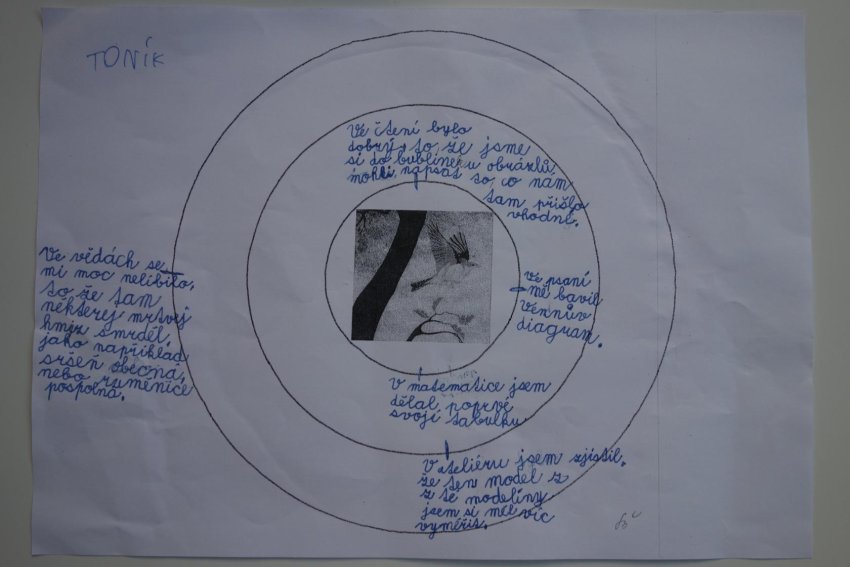 TONÍK
Ve čtení bylo
dobrý, to, že jsme
si do bubliney u obrázků,
mohli napsat to, co nám
tam přišlo
vhodné.
Ve vědách se
mi moc nelíbilo,
to že tam
některej mrtvej
hmyz smrděl,
jako například
sršeň obecná,
nebo ruměnice
pospolná.
Ve psaní
mě bavil
Vennův
diagram.
V matematice jsem
dělal poprvé
svojí tabulku.
V ateliéru jsem zjistil,
že ten model z
z té modelíny
jsem si měl víc
vyměřit.